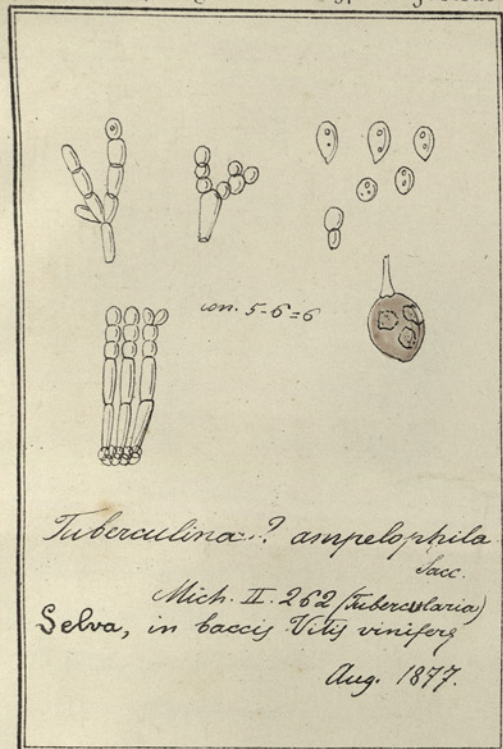 con. 5-6=6
Tuberculina ? ampelophila
Sacc.
Mich. II. 262 (Tubercularia)
Selva, in baccis Vitis viniferę
Aug. 1877.